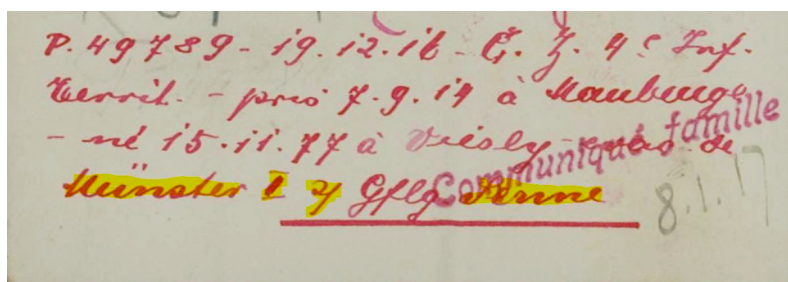 P. 49789 - 19.12.16 - C. Z. 4e Inf.
Territ. - pris 7.9.14 à Maubeuge
- né 15.11.77 à Viesly - de
Münster I Gflg
Communiqué famille
8.1.17